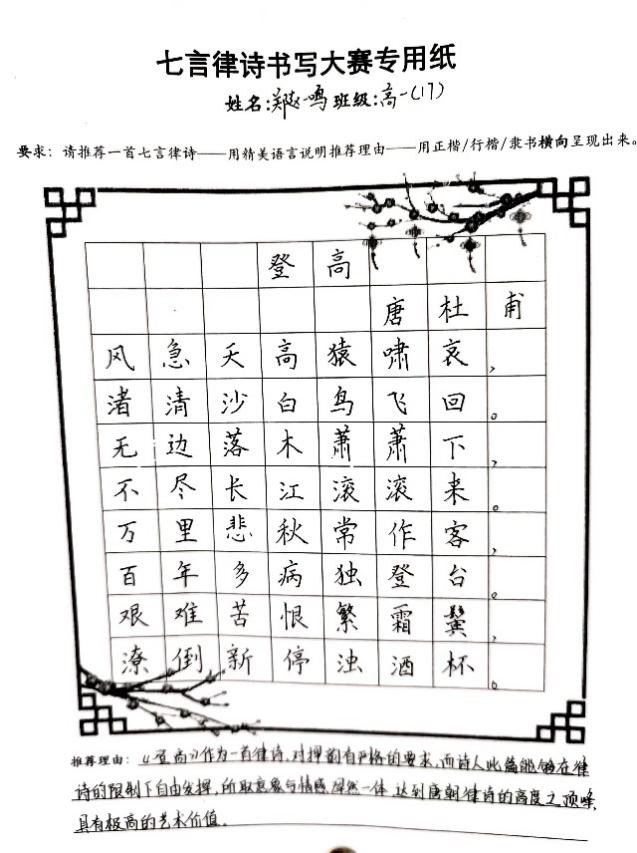 七言律诗书写大赛专用纸
姓名:郑越鸣 班级:高一(17)
要求：请推荐一首七言律诗——用精美语言说明推荐理由——用正楷/行楷/隶书横向呈现出来。
登高
唐杜甫
风急天高猿啸哀，
渚清沙白鸟飞回。
无边落木萧萧下，
不尽长江滚滚来。
万里悲秋常作客，
百年多病独登台。
艰难苦恨繁霜鬓，
潦倒新停浊酒杯。
推荐理由：《登高》作为一首律诗，对押韵有严格的要求，而诗人此篇能够在律
诗的限制下自由发挥，所取意象与情感浑然一体，达到唐朝律诗的高度之顶峰，
具有极高的艺术价值。